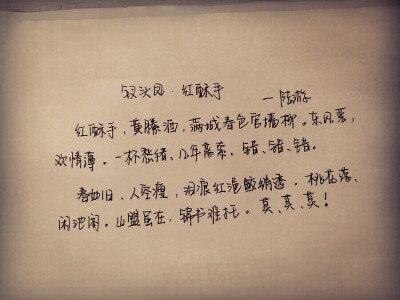 钗头凤·红酥手
—陆游
红酥手，黄縢酒，满城春色宫墙柳。东风恶，
欢情薄。一杯愁绪、几年离索。错、错、错。
春如旧，人空瘦，泪痕红浥鲛绡透。桃花落，
闲池阁。山盟虽在，锦书难托。莫、莫、莫！